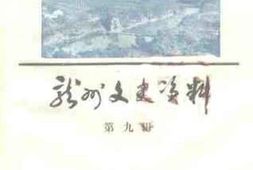 龙州文史资料
第九辑